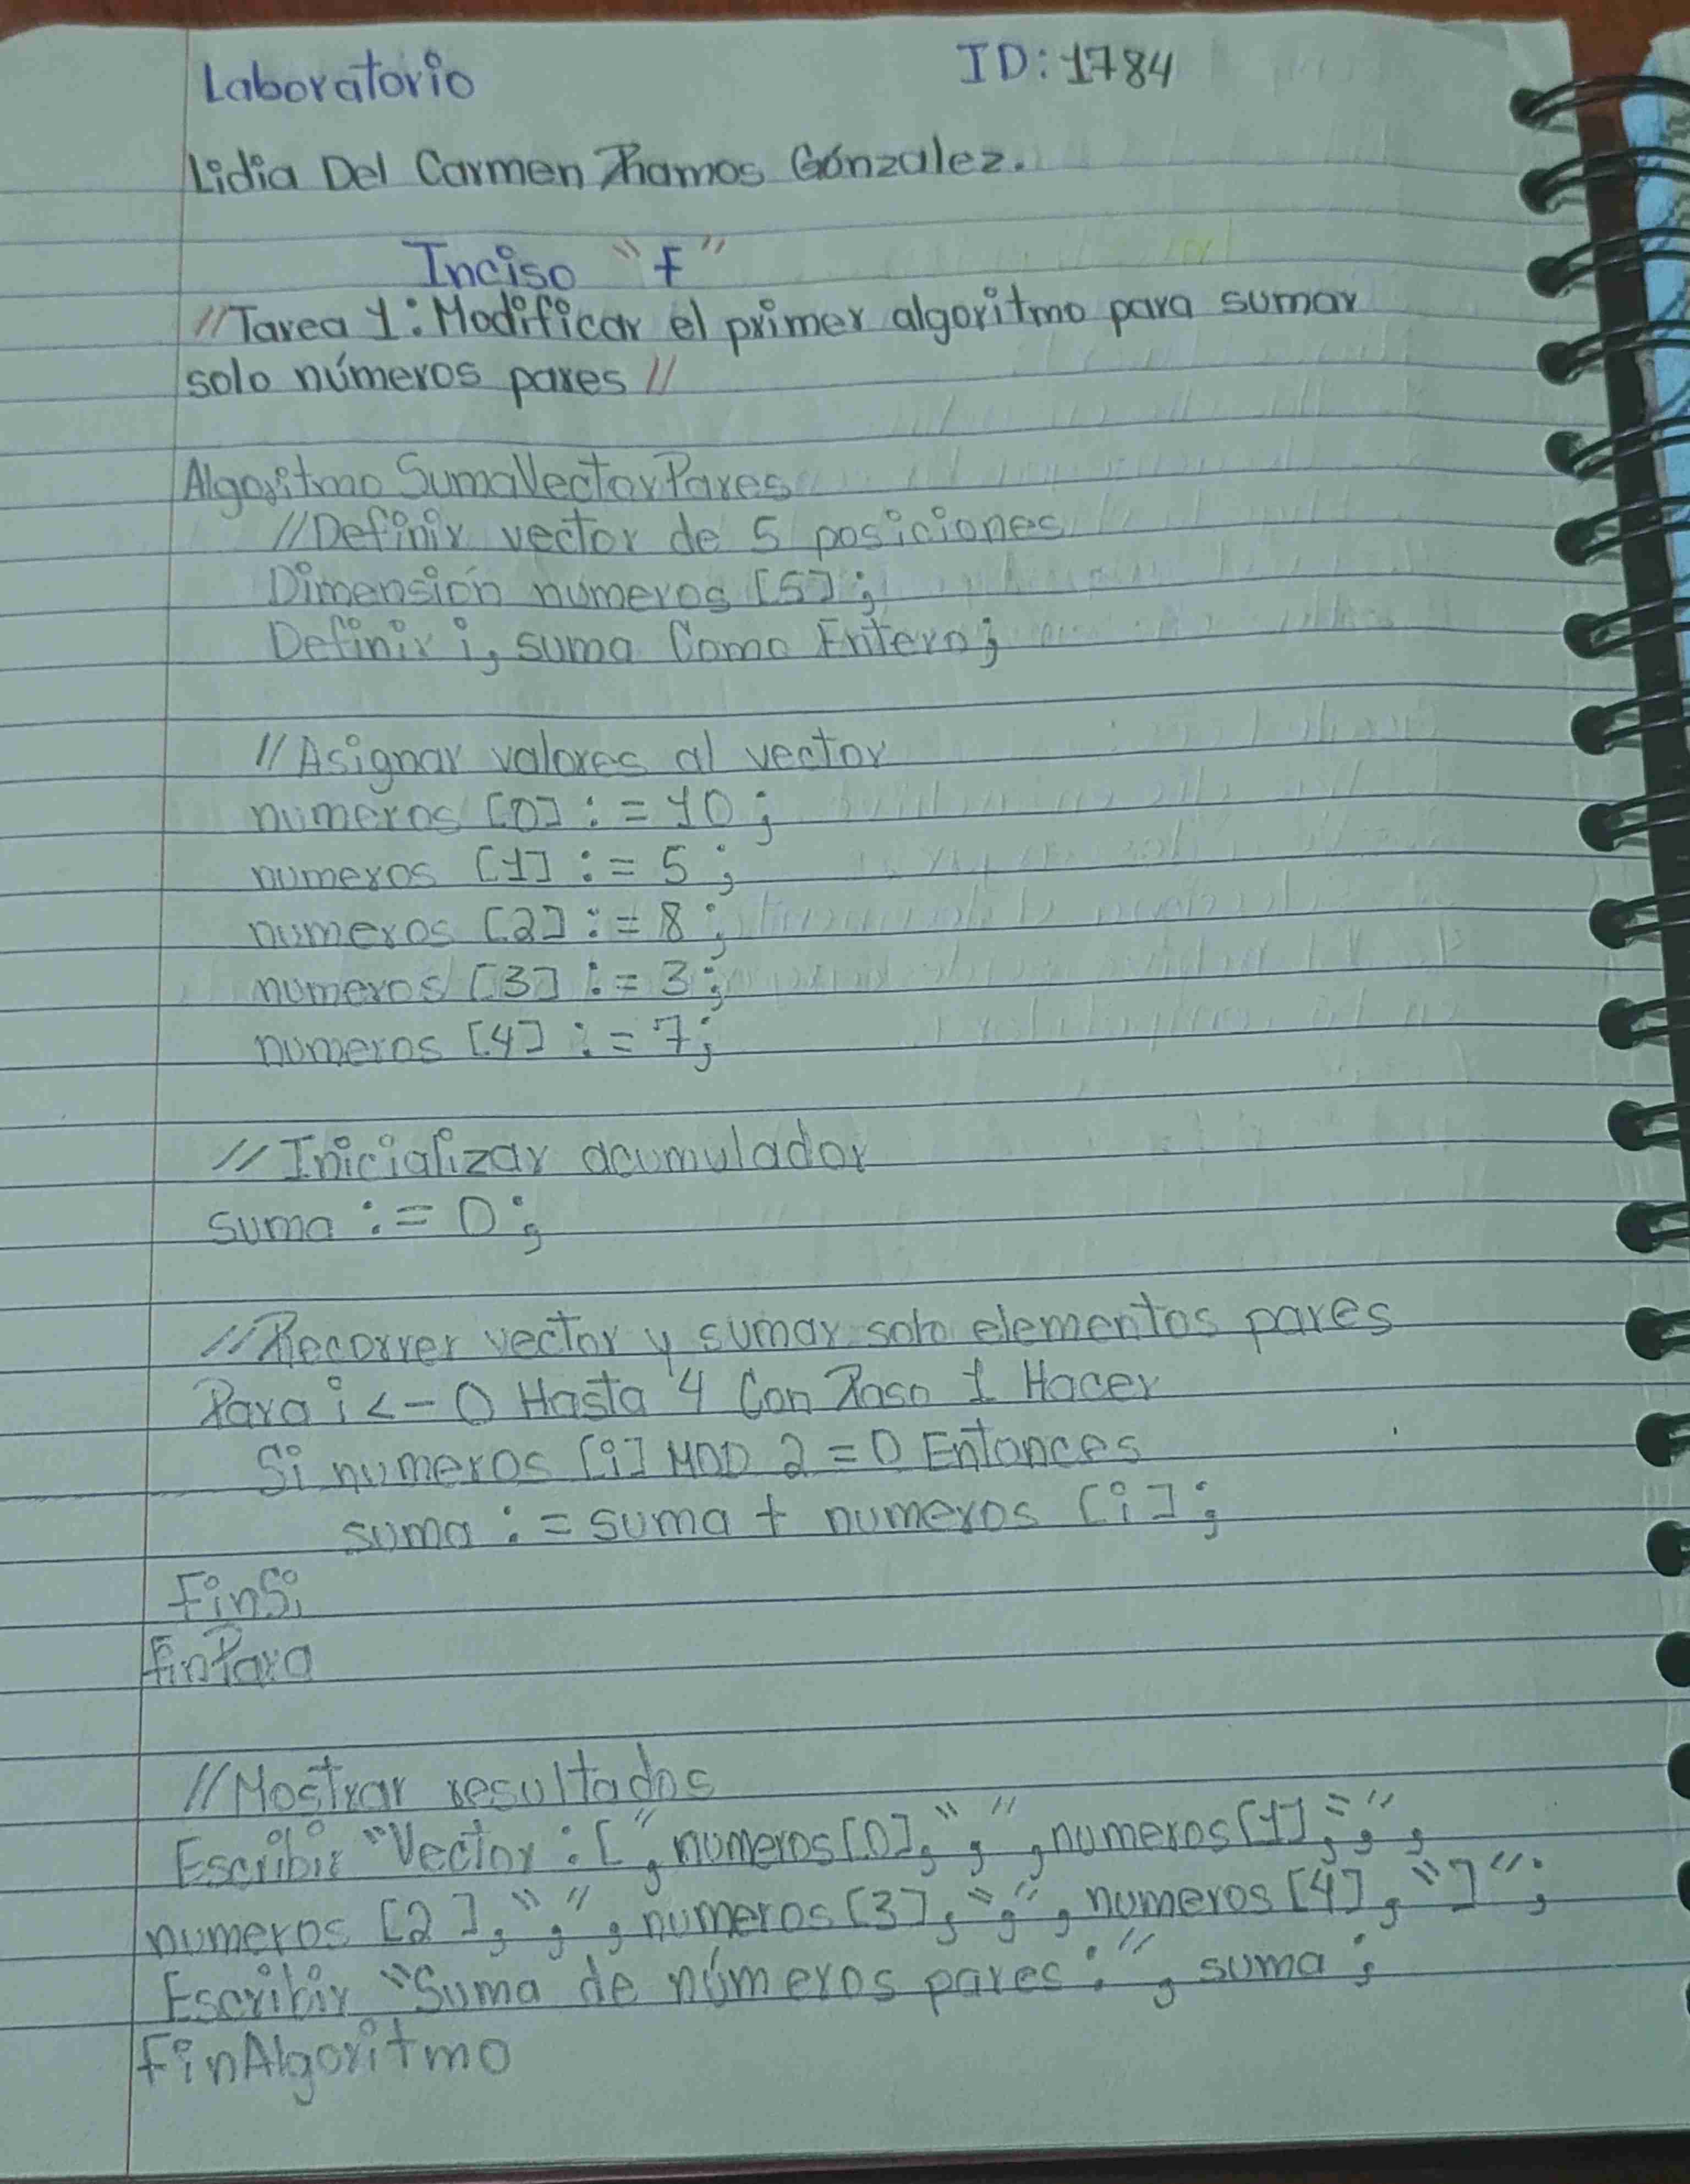 Laboratorio ID: 1784
Lidia Del Carmen Rhamos Gónzalez.
Inciso "F"
//Tarea 1: Modificar el primer algoritmo para sumar
solo números pares //
Algoritmo SumaVectorPares
//Definir vector de 5 posiciones
Dimensión numeros [5];
Definir i, suma Como Entero;
//Asignar valores al vector
numeros [0] := 10;
numeros [1] := 5;
numeros [2] := 8;
numeros [3] := 3;
numeros [4] := 7;
//Inicializar acumulador
suma := 0;
//Recorrer vector y sumar solo elementos pares
Para i <- 0 Hasta 4 Con Paso 1 Hacer
Si numeros [i] MOD 2 = 0 Entonces
suma := suma + numeros [i];
FinSi
FinPara
//Mostrar resultados
Escribir "Vector: [", numeros[0], ",", numeros[1], ",",
numeros [2], ",", numeros [3], ",", numeros [4], "]";
Escribir "Suma de números pares:", suma;
FinAlgoritmo